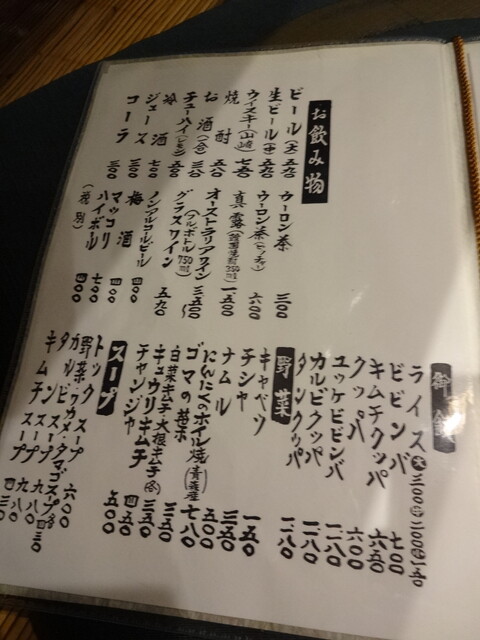 お飲み物
ビール(大)
生ビール(中)
ウイスキー(山崎)
焼酎
お酒(一合)
チューハイ(レモン)
冷酒 七〇〇
ジュース 三〇〇
コーラ 三〇〇
ウーロン茶 三〇〇
ウーロン茶 六〇〇
真露 一、五〇〇
オーストラリアワイン 三、五〇〇
(フルボトル750ml)
グラスワイン
ノンアルコールビール
梅酒 四〇〇
マッコリ 七〇〇
ハイボール 四〇〇
(税別)
御飯
ライス(大)三〇〇(中)二〇〇(小)一五〇
ビビンバ 七〇〇
キムチクッパ 六五〇
クッパ 六〇〇
ユッケビビンバ 一、一八〇
カルビクッパ 一、一八〇
タンクッパ 一、一八〇
野菜
キャベツ 一五〇
チシャ 三五〇
ナムル 五〇〇
にんにくのホイル焼(青森産) 七八〇
ゴマの葉 三五〇
白菜キムチ 大根キムチ(各) 三五〇
キュウリキムチ 四五〇
チャンジャ 五〇〇
スープ
トックスープ 六〇〇
野菜・ワカメ・タマゴスープ各 四三〇
カルビスープ 九八〇
タンスープ 九八〇
キムチスープ 四三〇